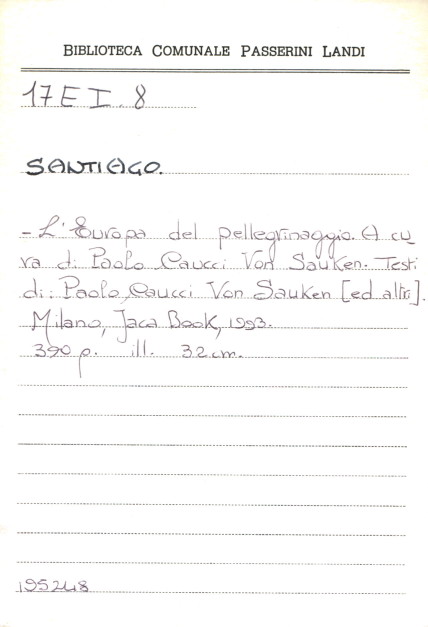 BIBLIOTECA COMUNALE PASSERINI LANDI
17 E I. 8
SANTIAGO.
- L'Europa del pellegrinaggio. A cu
ra di Paolo Caucci Von Sauken. Testi
di: Paolo Caucci Von Sauken [ed altri].
Milano, Jaca Book, 1993.
390 p. ill. 32 cm.
195248